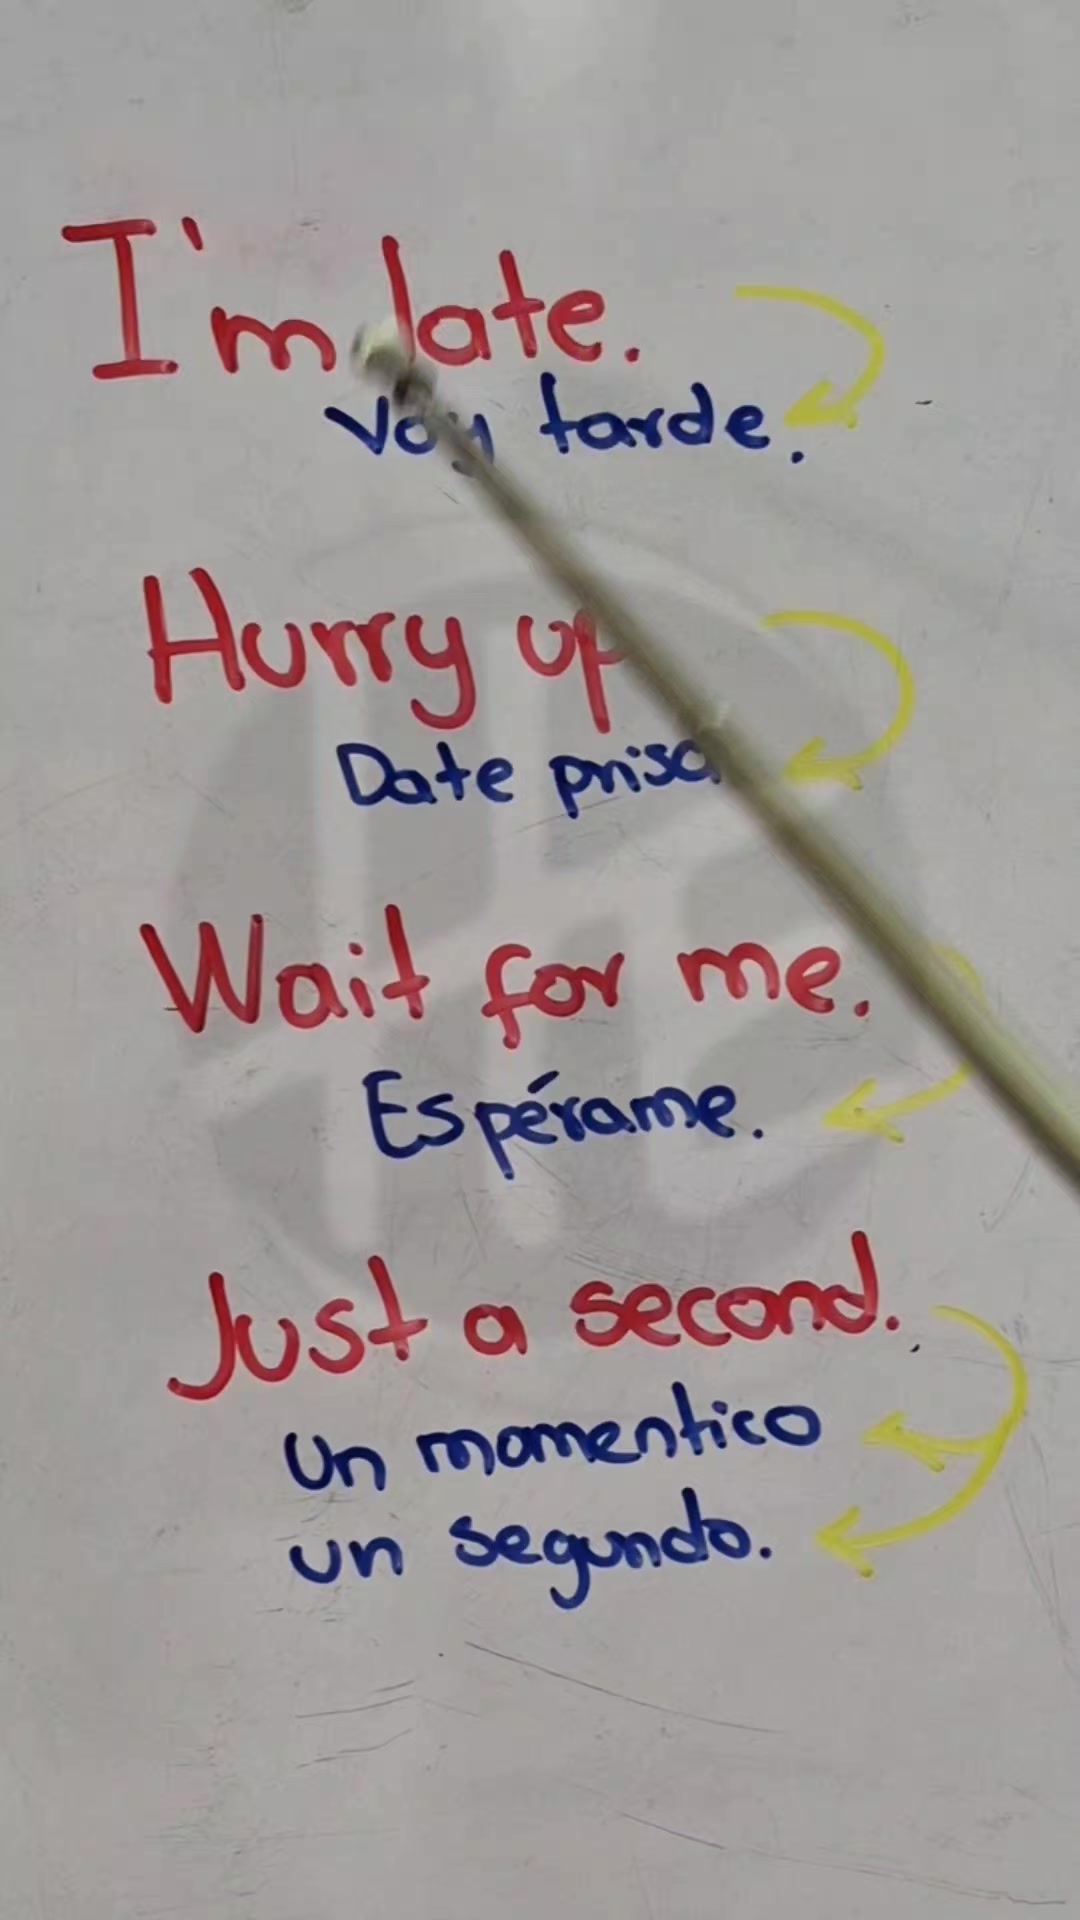 I'm late.
Voy tarde.
Hurry up
Date prisa
Wait for me.
Espérame.
Just a second.
Un momentico
un segundo.